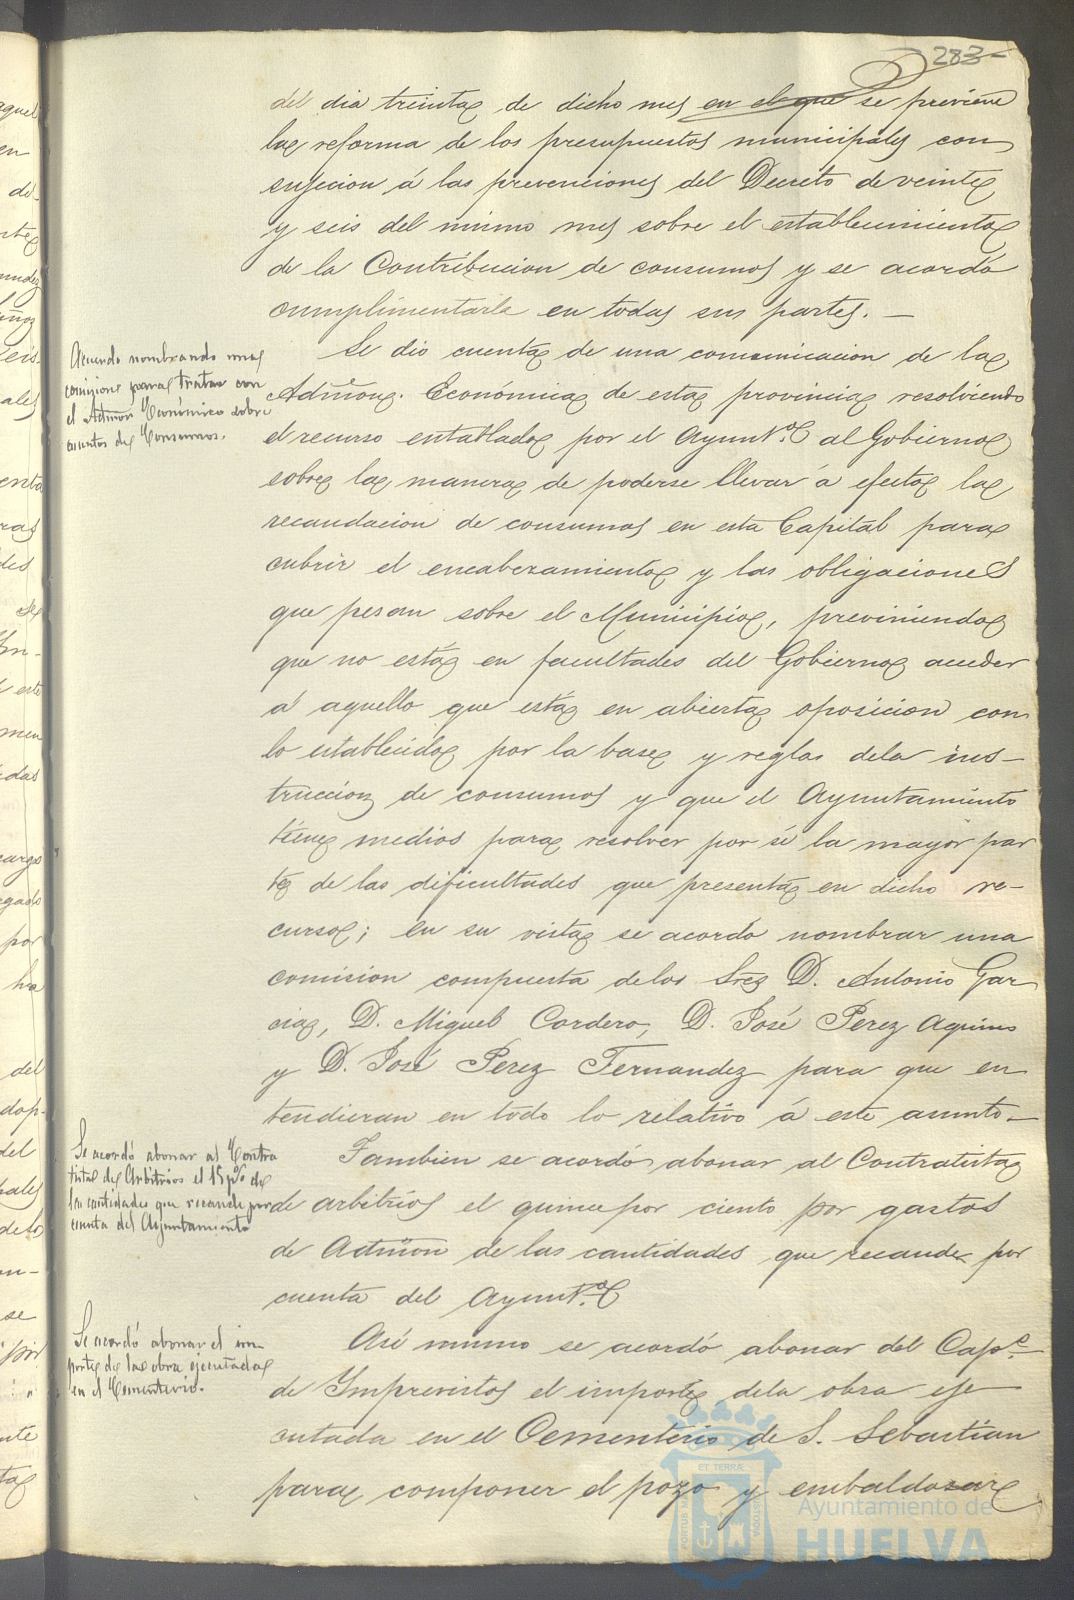 283
del dia treinta de dicho mes en el que se previene
la reforma de los presupuestos municipales con
sujecion á las prevenciones del Decreto de veinte
y seis del mismo mes sobre el establecimiento
de la Contribucion de consumos y se acordó
cumplimentarla en todas sus partes. —
Acuerdo nombrando una
comision para tratar con
el Admor Económico sobre
asuntos de Consumos.
Se dió cuenta de una comunicacion de la
Admon. Económica de esta provincia resolviendo
el recurso entablado por el Ayuntº al Gobierno
sobre la manera de poderse llevar á efecto la
recaudacion de consumos en esta Capital para
cubrir el encabezamiento y las obligaciones
que pesan sobre el Municipio, previniendo
que no está en facultades del Gobierno acceder
á aquello que está en abierta oposicion con
lo establecido por la base y reglas dela ins-
truccion de consumos y que el Ayuntamiento
tiene medios para resolver por sí la mayor par
te de las dificultades que presenta en dicho re-
curso; en su vista se acordó nombrar una
comision compuesta delos Sres D. Antonio Gar
cia, D. Miguel Cordero, D. José Perez Aquino
y D. José Perez Fernandez para que en
tendieran en todo lo relativo á este asunto.—
Se acordó abonar al Contra
tista de Arbitrios el 15 p% de
las cantidades que recaude por
cuenta del Ayuntamiento
Tambien se acordó abonar al Contratista
de arbitrios el quince por ciento por gastos
de Admon de las cantidades que recaude por
cuenta del Ayuntº
Se acordó abonar el im
porte de la obra ejecutada
en el Cementerio.
Asi mismo se acordó abonar del Capº
de Imprevistos el importe dela obra eje
cutada en el Cementerio de S. Sebastian
para componer el pozo y embaldosar
Ayuntamiento de
HUELVA